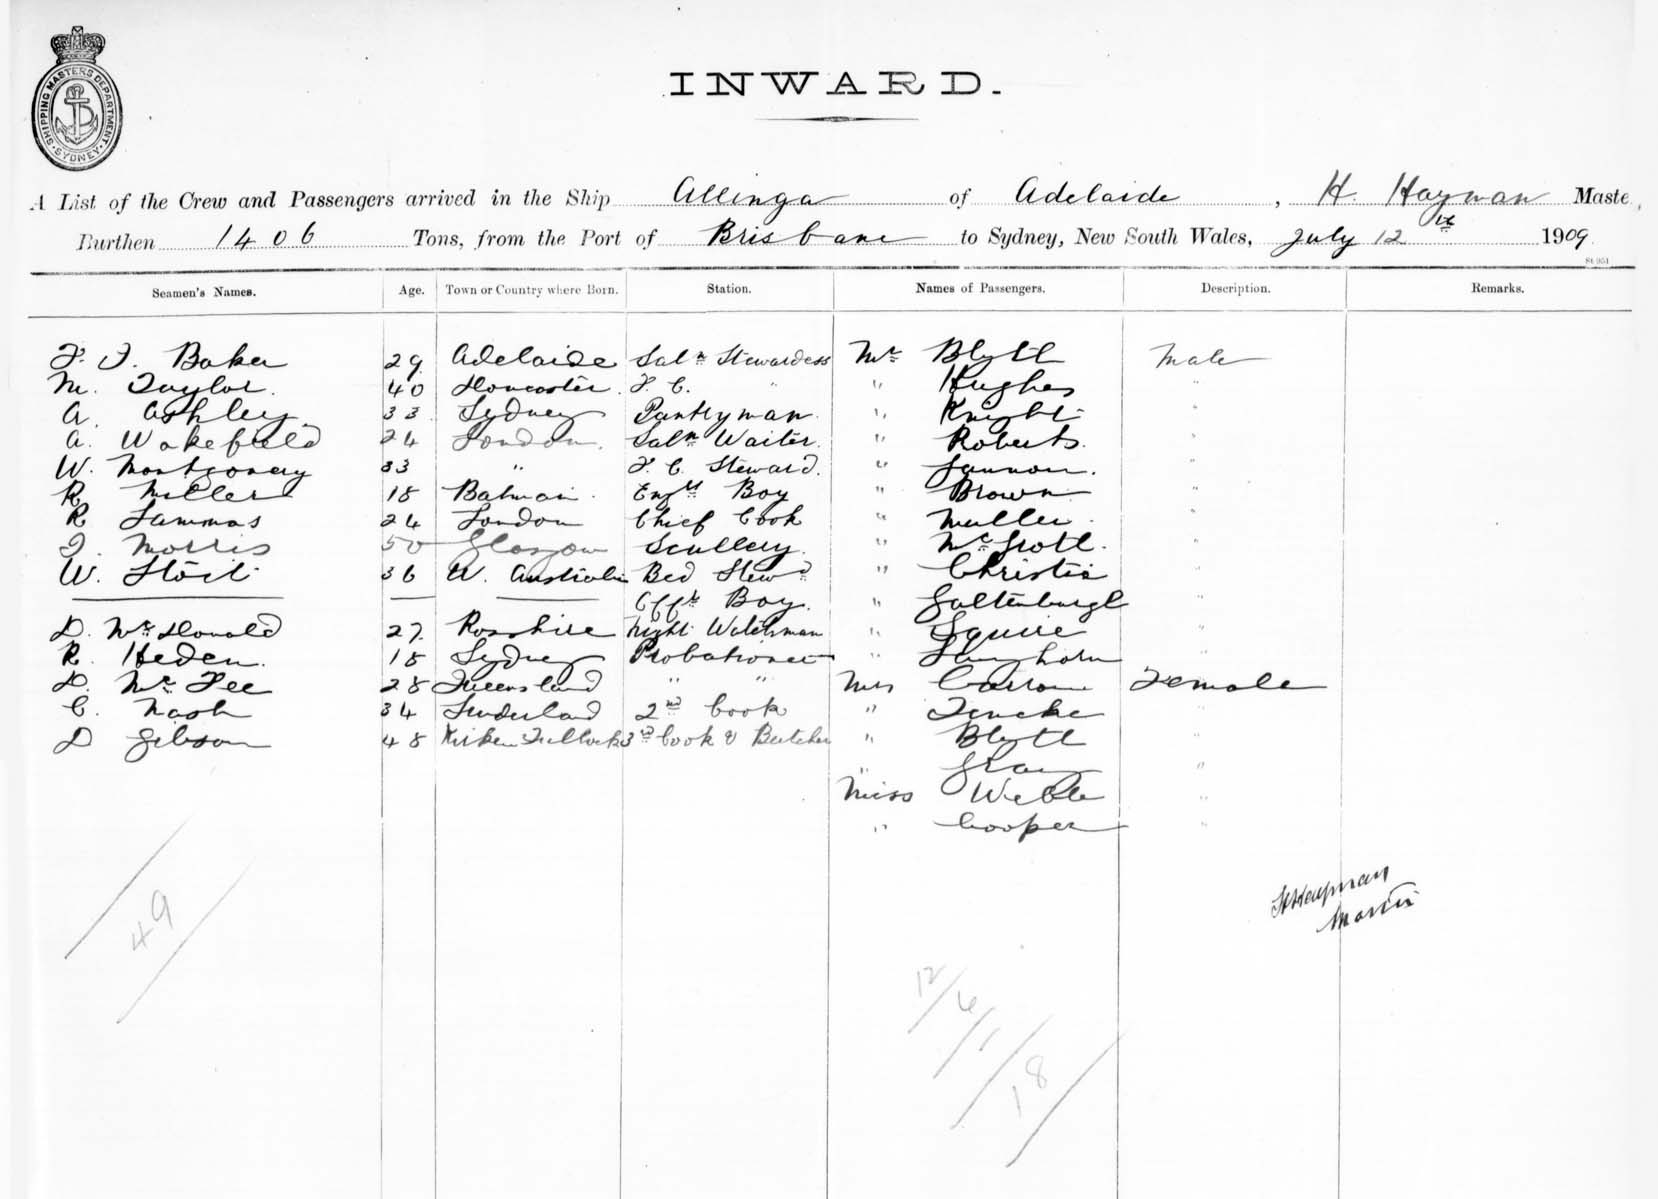 SHIPPING MASTERS DEPARTMENT. SYDNEY.
INWARD.
A List of the Crew and Passengers arrived in the Ship Allinga of Adelaide, H. Hayman Maste
Burthen 1406 Tons, from the Port of Brisbane to Sydney, New South Wales, July 12th 1909
Seamen's Names. Age. Town or Country where Born. Station. Names of Passengers. Description. Remarks.
Baker 29 Adelaide Saln Stewardess Mr Blyth Male
M. Taylor 40 Doncaster F. C. " " Hughes "
A. Ashley 33 Sydney Pantryman " Knight "
A. Wakefield 24 London Saln Waiter " Roberts "
W. Montgomery 33 " F. C. Steward " Lannon "
R Miller 18 Balmain Engrs Boy " Brown "
R Lammas 24 London Chief Cook " Muller "
J. Morris 50 Glasgow Scullery " "
W. 36 W. Australia Bed Stewd " Christie "
Offrs Boy. " "
D. McDonald 27 Rosshire Night Watchman " Squire "
R. Heden 18 Sydney Probationer " Langhorn "
D. McFee 28 Queensland " " Mrs Female
C. Nash 34 Sunderland 2nd Cook " "
D Gibson 48 3rd Cook & Butcher " Blyth "
" Gray "
Miss Webb "
" Cooper "
H Hayman
Master
49
12/6/1/18